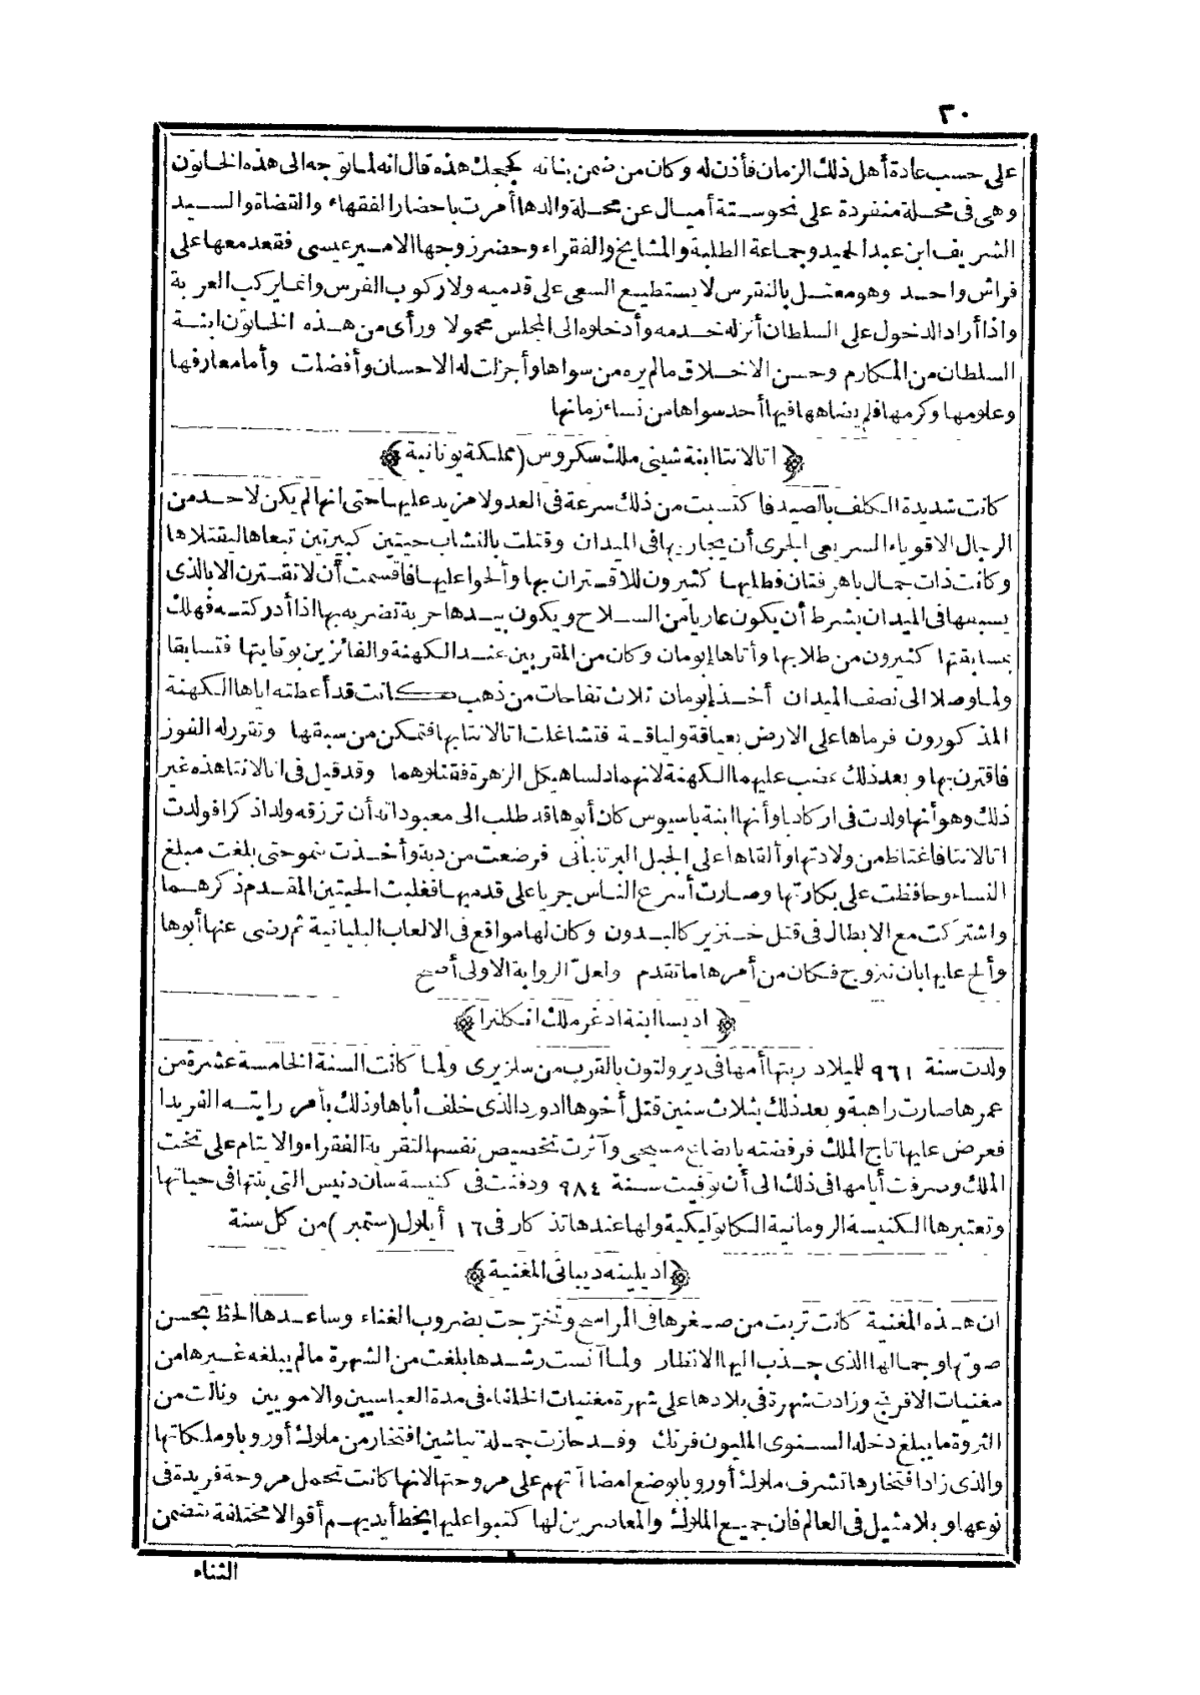 ٣٠
على حسب عادة أهل ذلك الزمان فأذن له وكان من ضمن بناته كججك هذه قال انه لما توجه الى هذه الخاتون
وهى فى محلة منفردة على نحو ستة أميال عن محلة والدها أمرت باحضار الفقهاء والقضاة والسيد
الشريف ابن عبد الحميد وجماعة الطلبة والمشايخ والفقراء وحضر زوجها الامير عيسى فقعد معها على
فراش واحد وهو معتل بالنقرس لا يستطيع السعى على قدميه ولا ركوب الفرس وانما يركب العربة
واذا أراد الدخول على السلطان أنزله خدمه وأدخلوه الى المجلس محمولا ورأى من هذه الخاتون ابنة
السلطان من المكارم وحسن الاخلاق ما لم يره من سواها وأجزلت له الاحسان وأفضلت وأما معارفها
وعلومها وكرمها فلم يضاهها فيها أحد سواها من نساء زمانها
﴿اتالانتا ابنة شينى ملك سكروس (مملكة يونانية)﴾
كانت شديدة الكلف بالصيد فاكتسبت من ذلك سرعة فى العدو لا مزيد عليها حتى انها لم يكن لاحد من
الرجال الاقوياء السريعى الجرى أن يجاريها فى الميدان وقتلت بالنشاب حيتين كبيرتين تبعاها ليقتلاها
وكانت ذات جمال باهر فتان فطلبها كثيرون للاقتران بها وألحوا عليها فاقسمت أن لا تقترن الا بالذى
يسبقها فى الميدان بشرط أن يكون عاريا من السلاح ويكون بيدها حربة تضربه بها اذا أدركته فهلك
بمسابقتها كثيرون من طلابها وأتاها إبومان وكان من المقربين عند الكهنة والفائزين بوقايتها فتسابقا
ولما وصلا الى نصف الميدان أخذ إبومان ثلاث تفاحات من ذهب كانت قد أعطته اياها الكهنة
المذكورون فرماها على الارض بعياقة ولباقة فتشاغلت اتالانتا بها فتمكن من سبقها وتقرر له الفوز
فاقترن بها وبعد ذلك غضب عليهما الكهنة لانهما دنسا هيكل الزهرة فقتلوهما وقد قيل فى اتالانتا هذه غير
ذلك وهو أنها ولدت فى اركاديا وأنها ابنة ياسيوس كان أبوها قد طلب الى معبوداته أن ترزقه ولدا ذكرا فولدت
اتالانتا فاغتاظ من ولادتها وألقاها على الجبل البرتنيانى فرضعت من دبة وأخذت تنمو حتى بلغت مبلغ
النساء وحافظت على بكارتها وصارت أسرع الناس جريا على قدميها فغلبت الحيتين المقدم ذكرهما
واشتركت مع الابطال فى قتل خنزير كاليدون وكان لها مواقع فى الالعاب البليانية ثم رضى عنها أبوها
وألح عليها بان تتزوج فكان من أمرها ما تقدم ولعل الرواية الاولى أصح
﴿اديسا ابنة ادغر ملك انكلترا﴾
ولدت سنة ٩٦١ للميلاد ربتها أمها فى دير ولتون بالقرب من سلزبرى ولما كانت السنة الخامسة عشرة من
عمرها صارت راهبة وبعد ذلك بثلاث سنين قتل أخوها ادورد الذى خلف أباها وذلك بأمر رابته الفريدا
فعرض عليها تاج الملك فرفضته باتضاع مسيحى وآثرت تخصيص نفسها لتقربة الفقراء والايتام على تخت
الملك وصرفت أيامها فى ذلك الى أن توفيت سنة ٩٨٤ ودفنت فى كنيسة سان دنيس التى بنتها فى حياتها
وتعتبرها الكنيسة الرومانية الكاتوليكية ولها عندها تذكار فى ١٦ أيلول (ستمبر) من كل سنة
﴿اديلينه ديباتى المغنية﴾
ان هذه المغنية كانت تربت من صغرها فى المراسح وتخرجت بضروب الغناء وساعدها الحظ بحسن
صوتها وجمالها الذى جذب اليها الانظار ولما آنست رشدها بلغت من الشهرة ما لم يبلغه غيرها من
مغنيات الافرنج وزادت شهرة فى بلادها على شهرة مغنيات الخلفاء فى مدة العباسيين والامويين ونالت من
الثروة ما يبلغ دخله السنوى المليون فرنك وقد حازت جملة نياشين افتخار من ملوك أوروبا وملكاتها
والذى زاد افتخارها تشرف ملوك أوروبا بوضع امضاآتهم على مروحتها لانها كانت تحمل مروحة فريدة فى
نوعها وبلا مثيل فى العالم فان جميع الملوك والمعاصرين لها كتبوا عليها بخط أيديهم أقوالا مختلفة تتضمن
الثناء